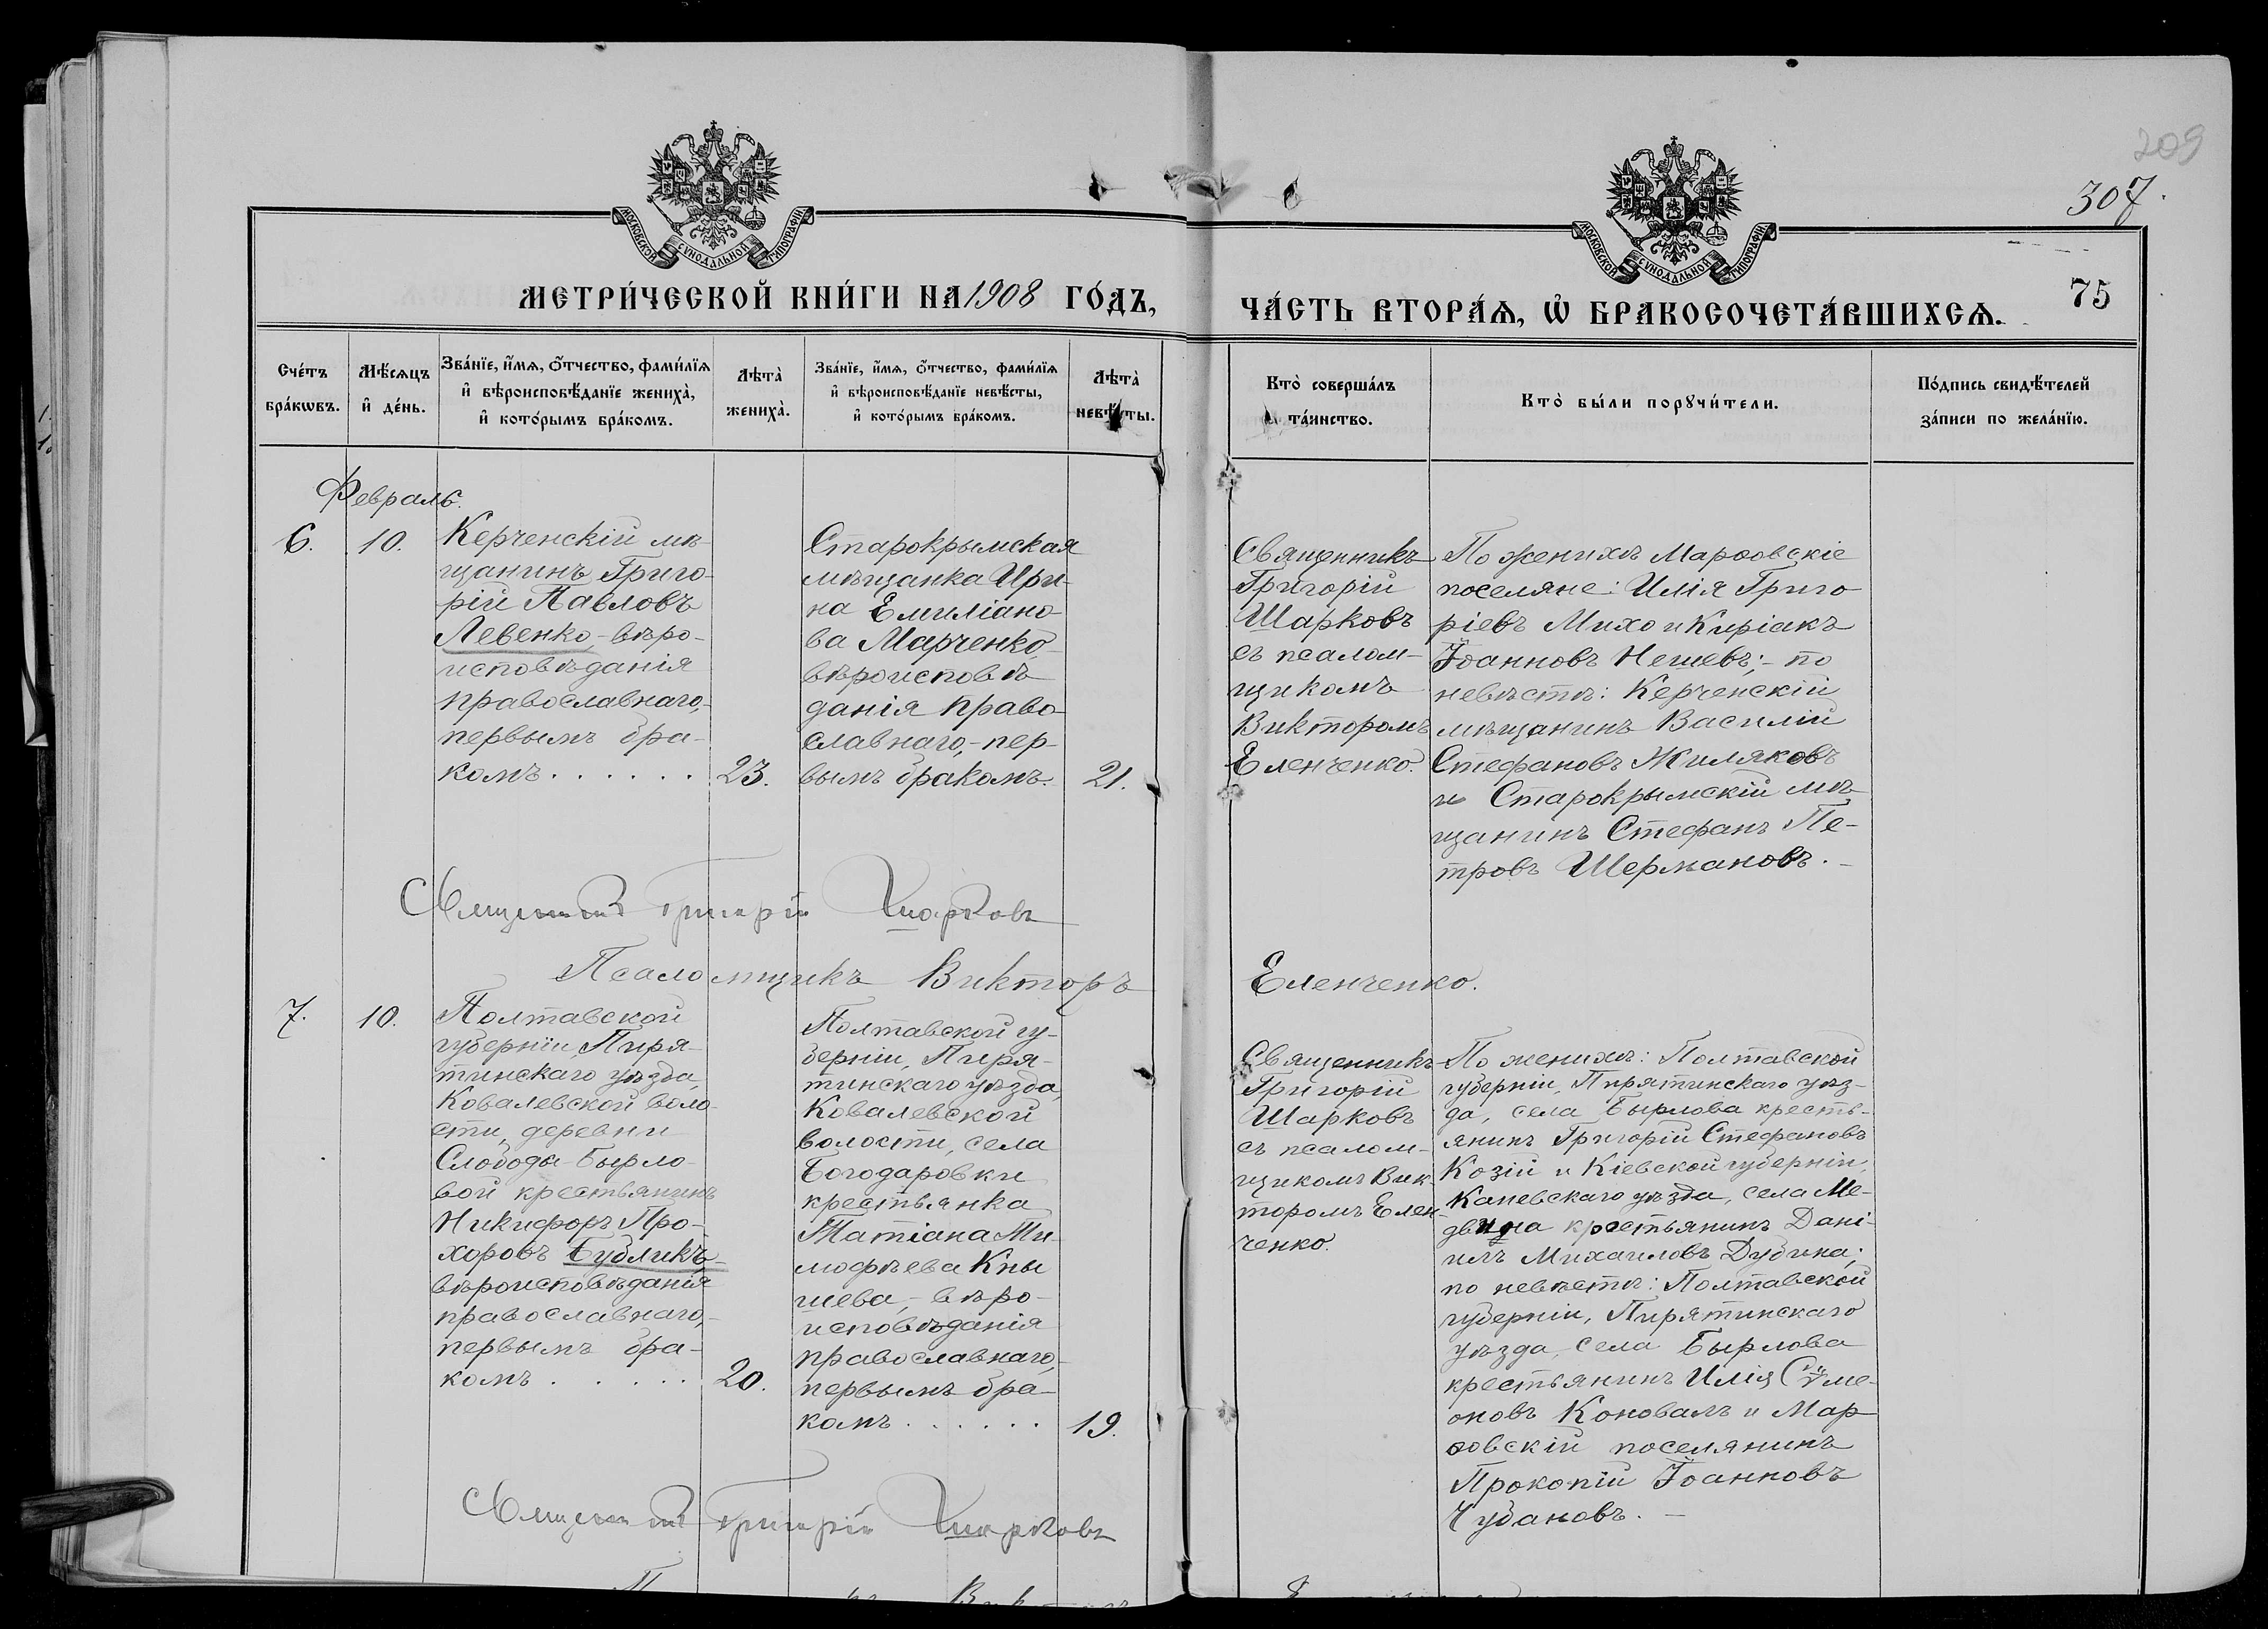 209
307.
МОСКОВСКОЙ СѴНОДАЛЬНОЙ ТИПОГРАФІИ
МОСКОВСКОЙ СѴНОДАЛЬНОЙ ТИПОГРАФІИ
МЕТРИ́ЧЕСКОЙ КНИ́ГИ НА 1908 ГО́ДЪ,
ЧА́СТЬ ВТОРА́Ѧ, Ѽ БРАКОСОЧЕТА́ВШИХСѦ.
75
Сче́тъ
бра́кѡвъ.
Мѣ́сѧцъ
и҆ де́нь.
Зва́нїе, и҆́мѧ, ѻ҆́тчество, фами́лїѧ
и҆ вѣроисповѣ́данїе жениха̀,
и҆ кото́рымъ бра́комъ.
Лѣта̀
жениха̀.
Зва́нїе, и҆́мѧ, ѻ҆́тчество, фами́лїѧ
и҆ вѣроисповѣ́данїе невѣ́сты,
и҆ кото́рымъ бра́комъ.
Лѣта̀
невѣ́сты.
Кто̀ соверша́лъ
та́инство.
Кто̀ бы́ли порꙋчи́тели.
По́дпись свидѣ́телей
за́писи по жела́нїю.
Февраль.
6.
10.
Керченскій мѣ-
щанинъ Григо-
рій Павловъ
Левенко,- вѣро-
исповѣданія
православнаго,-
первымъ бра-
комъ . . . . . .
23.
Старокрымская
мѣщанка Ири-
на Емиліано-
ва Марченко,
вѣроисповѣ-
данія право-
славнаго,- пер-
вымъ бракомъ.
21.
Священникъ
Григорій
Шарковъ
съ псалом-
щикомъ
Викторомъ
Еленченко.
По женихѣ Марѳовскіе
поселяне: Илія Григо-
ріевъ Михо и Киріакъ
Іоанновъ Нешевъ;- по
невѣстѣ: Керченскій
мѣщанинъ Василій
Стефановъ Жиляковъ
и Старокрымскій мѣ-
щанинъ Стефанъ Пе-
тровъ Шермановъ. -
Священникъ Григорій Шарковъ
Псаломщикъ Викторъ
Еленченко.
7.
10.
Полтавской
губерніи, Пиря-
тинскаго уѣзда,
Ковалевской воло-
сти, деревни
Слободы-Бырло-
вой крестьянинъ
Никифоръ Про-
хоровъ Бубликъ,-
вѣроисповѣданія
православнаго,-
первымъ бра-
комъ . . . . .
20.
Полтавской гу-
берніи, Пиря-
тинскаго уѣзда,
Ковалевской
волости, села
Богодаровки
крестьянка
Татіана Ти-
моѳѣева Кны-
шева,- вѣро-
исповѣданія
православнаго,-
первымъ бра-
комъ . . . . . .
19.
Священникъ
Григорій
Шарковъ
съ псалом-
щикомъ Вик-
торомъ Елен-
ченко.
По женихѣ: Полтавской
губерніи, Пирятинскаго уѣз-
да, села Бырлова кресть-
янинъ Григорій Стефановъ
Козій и Кіевской губерніи,
Каневскаго уѣзда, села Ме-
двина крестьянинъ Дані-
илъ Михаиловъ Дубина;
по невѣстѣ: Полтавской
губерніи, Пирятинскаго
уѣзда, села Бырлова
крестьянинъ Илія Сѵме-
оновъ Коновалъ и Мар-
ѳовскій поселянинъ
Прокопій Іоанновъ
Чубановъ. -
Священникъ Григорій Шарковъ